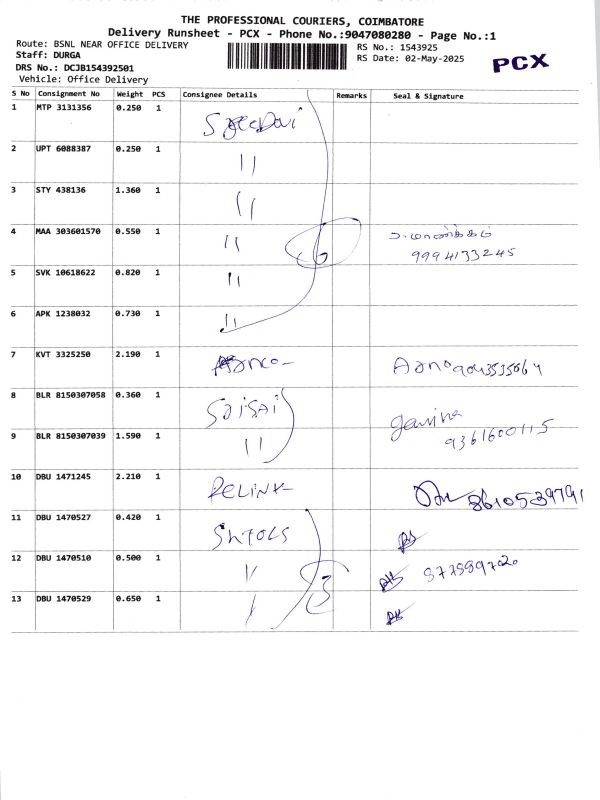 THE PROFESSIONAL COURIERS, COIMBATORE
Delivery Runsheet - PCX - Phone No.:9047080280 - Page No.:1
Route: BSNL NEAR OFFICE DELIVERY
RS No.: 1543925
Staff: DURGA
RS Date: 02-May-2025
PCX
DRS No.: DCJB154392501
Vehicle: Office Delivery
S No Consignment No Weight PCS Consignee Details Remarks Seal & Signature
1 MTP 3131356 0.250 1
2 UPT 6088387 0.250 1 "
3 STY 438136 1.360 1 "
4 MAA 303601570 0.550 1 " 6
9994133245
5 SVK 10618622 0.820 1 "
6 APK 1238032 0.730 1 "
7 KVT 3325250 2.190 1
8 BLR 8150307058 0.360 1 SaiSai
9 BLR 8150307039 1.590 1 " 9361600115
10 DBU 1471245 2.210 1 RELINK 8610539791
11 DBU 1470527 0.420 1
12 DBU 1470510 0.500 1
13 DBU 1470529 0.650 1 3